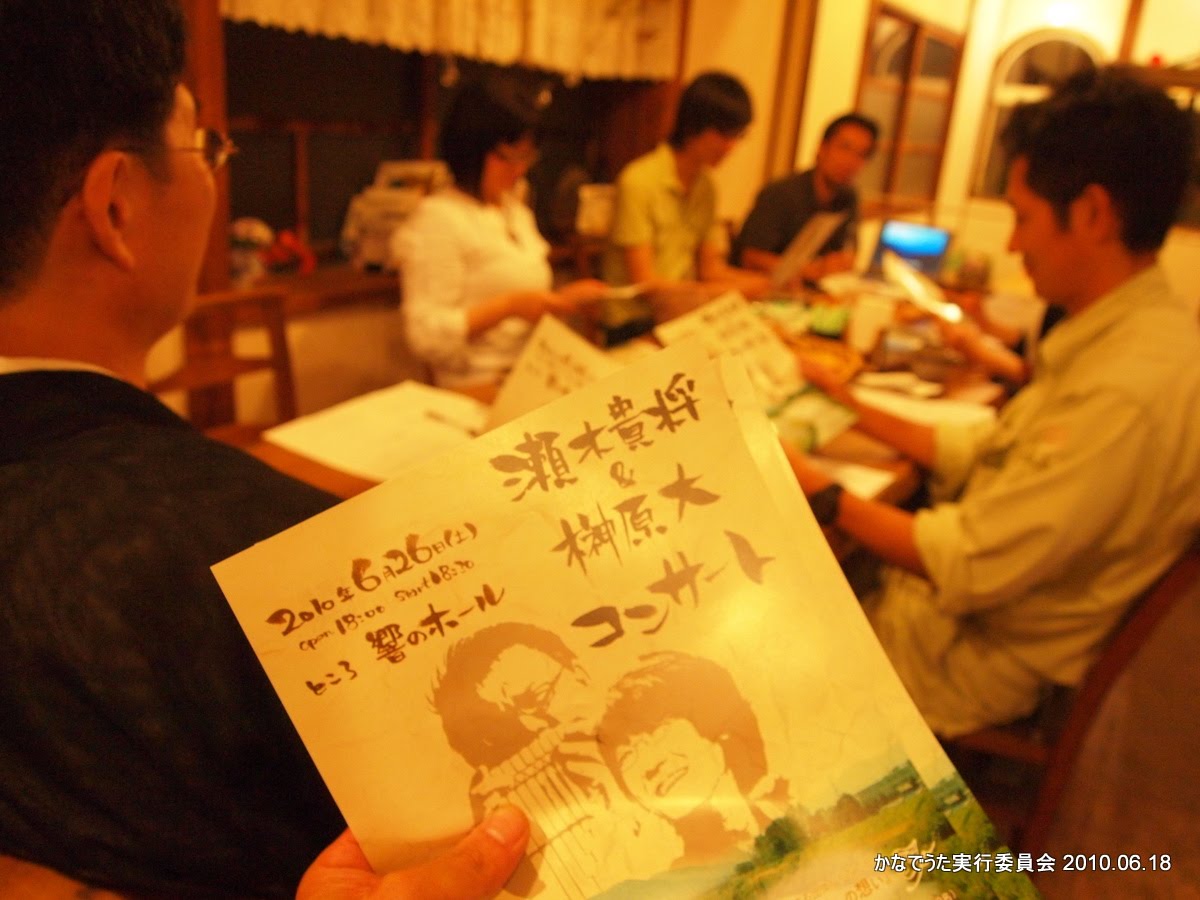 瀬木貴将
&
榊原大
コンサート
2010年6月26日(土)
open 18:00 start 18:30
ところ 響のホール
かなでうた実行委員会 2010.06.18